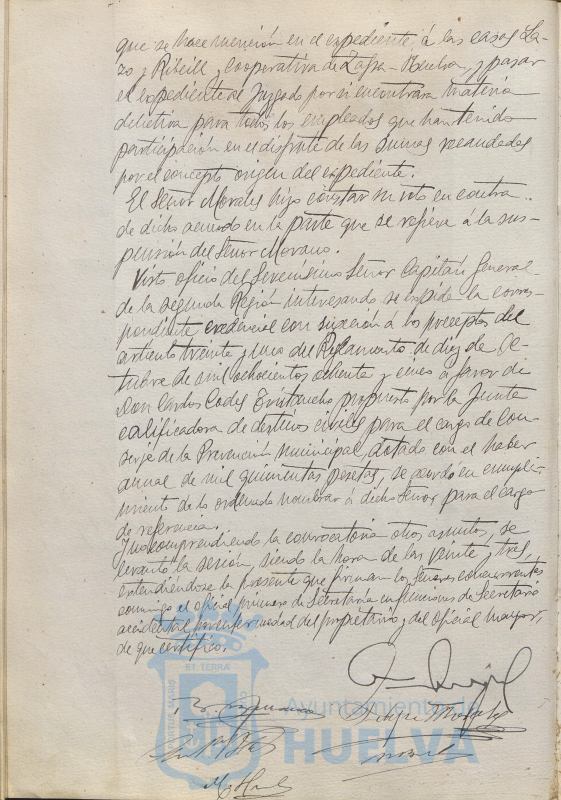 que se hace mención en el expediente, á las casas La-
zo y Ribeill y Cooperativa de Zafra-Huelva, y pasar
el expediente al Juzgado por si encontrara materia
delictiva para todos los empleados que han tenido
participación en el disfrute de las sumas recaudadas
por el concepto origen del expediente.
El Señor Morales hizo constar su voto en contra
de dicho acuerdo en la parte que se refiere á la sus-
pensión del Señor Morano.
Visto oficio del Serenísimo Señor Capitán General
de la segunda Región interesando se expida la corres-
pondiente credencial con sujeción á los preceptos del
artículo treinta y uno del Reglamento de diez de Oc-
tubre de mil ochocientos ochenta y cinco a favor de
Don Carlos propuesto por la Junta
calificadora de destinos civiles para el cargo de Con-
serje de la Prevención municipal, dotado con el haber
anual de mil quinientas pesetas, se acordó en cumpli-
miento de lo ordenado nombrar á dicho Señor para el cargo
de referencia.
Y no comprendiendo la convocatoria otros asuntos, se
levantó la sesión, siendo la hora de las veinte y tres,
extendiéndose la presente que firman los Señores concurrentes
conmigo el oficial primero de Secretaría en funciones de Secretario
accidental por enfermedad del propietario y del oficial mayor,
de que certifico.
Felipe Morales
ET TERRÆ
Ayuntamiento de
HUELVA